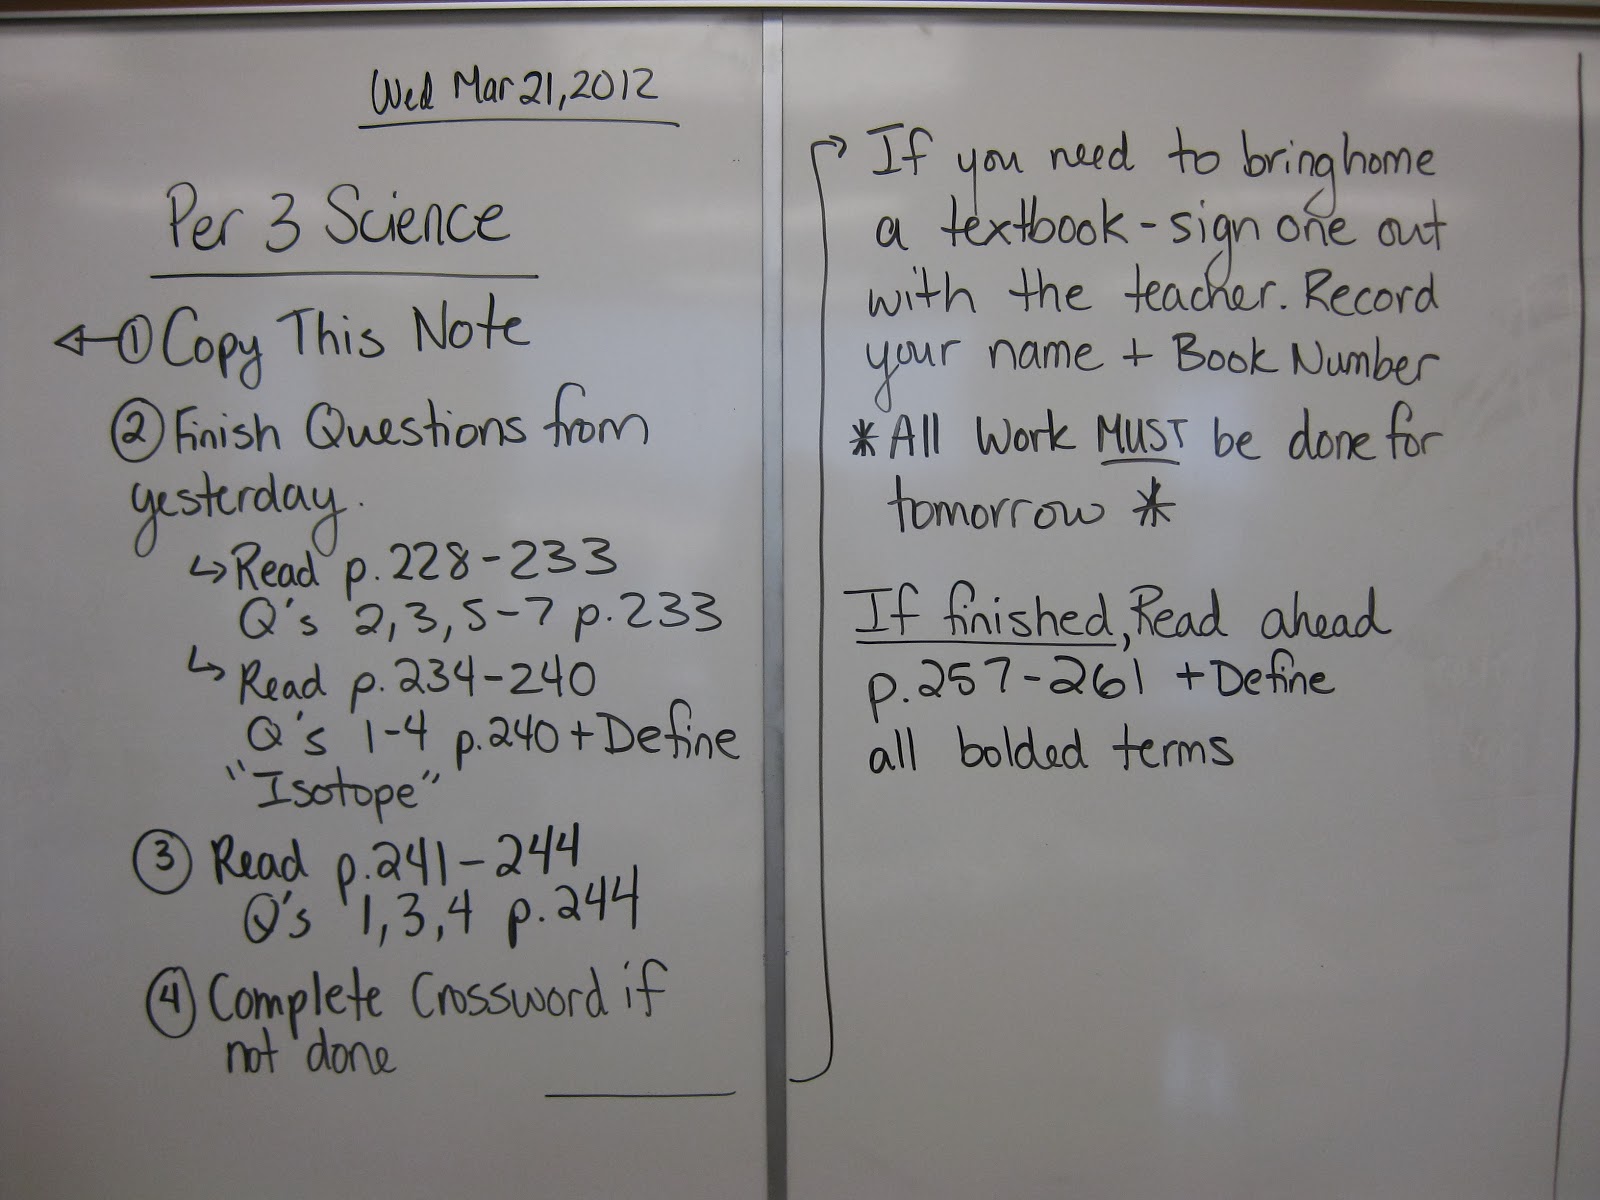 Wed Mar 21, 2012
Per 3 Science
① Copy This Note
② Finish Questions from
yesterday.
↳ Read p. 228-233
Q's 2, 3, 5-7 p. 233
↳ Read p. 234-240
Q's 1-4 p. 240 + Define
"Isotope"
③ Read p. 241-244
Q's 1, 3, 4 p. 244
④ Complete Crossword if
not done
If you need to bring home
a textbook - sign one out
with the teacher. Record
your name + Book Number
* All Work MUST be done for
tomorrow *
If finished, Read ahead
p. 257-261 + Define
all bolded terms